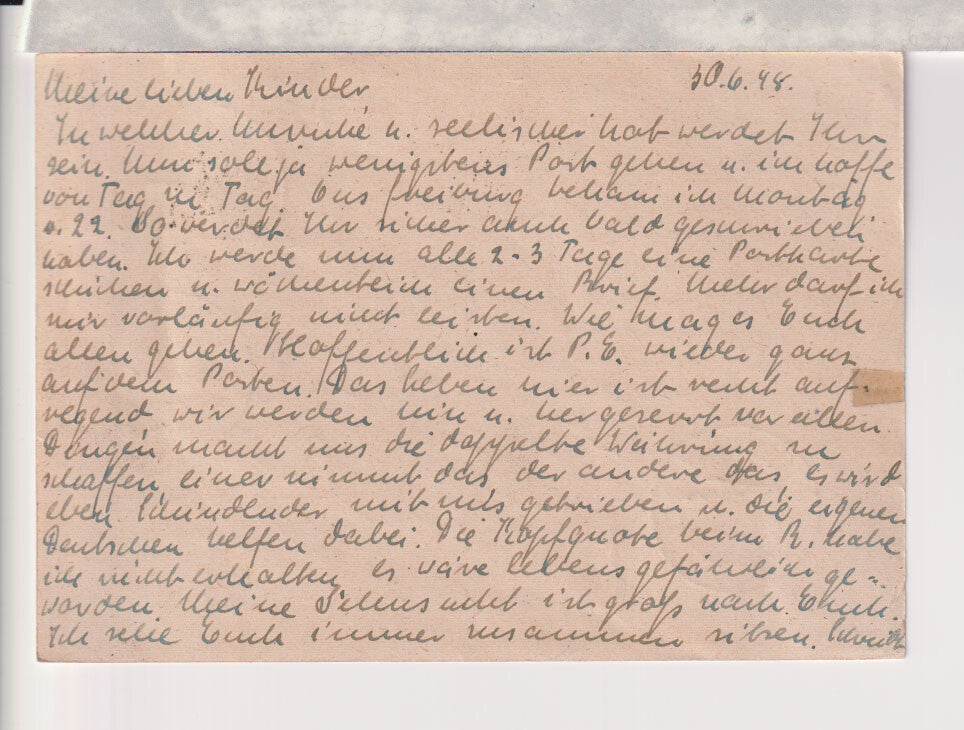 Meine lieben Kinder 30.6.48.
In welcher Unruhe u. seelischer Not werdet Ihr
sein. Nun soll ja wenigstens Post gehen u. ich hoffe
von Tag zu Tag. Aus Freiburg bekam ich Montag
v. 22. So werdet Ihr sicher auch bald geschrieben
haben. Ich werde nun alle 2-3 Tage eine Postkarte
schicken u. wöchentlich einen Brief. Mehr darf ich
mir vorläufig nicht leisten. Wie mag es Euch
allen gehen. Hoffentlich ist P.E. wieder ganz
auf dem Posten. Das Leben hier ist recht auf-
regend wir werden hin u. hergezerrt vor allen
Dingen macht uns die doppelte Währung zu
schaffen, einer nimmt das, der andere das, es wird
eben Schindluder mit uns getrieben u. die eigenen
Deutschen helfen dabei. Die Kopfquote beim R. habe
ich nicht erhalten, es wäre lebensgefährlich ge-
worden. Meine Sehnsucht ist groß nach Euch.
Ich sehe Euch immer zusammen sitzen.